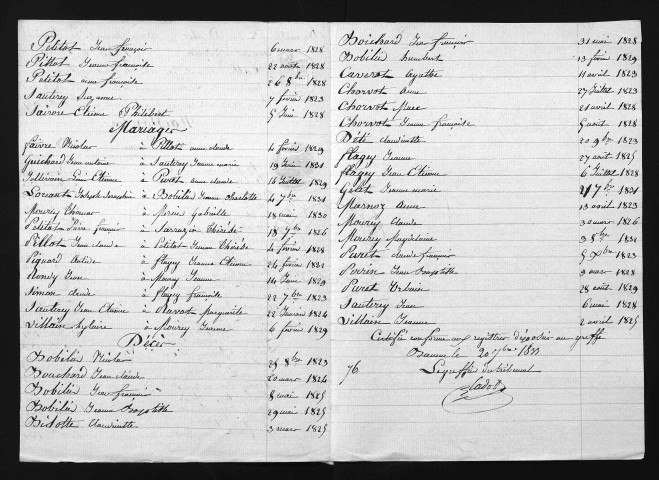 Petitot Jean françois 6 mars 1828
Pillot Jeanne françoise 22 août 1828
Petitot anne françoise 26 8bre 1828
Sauterey Suzanne 7 févrir 1823
Faivre Etienne Philibert 5 Juin 1828
Mariages
faivre Nicolas à Pillot anne claude 4 févrir 1829
Guichard Jean antoine à Sauterey Jeanne marie 19 Juin 1831
Jolivain Louis Etienne à Petit anne claude 14 Juillet 1829
Loriant Joseph à Bobilié Jeanne Charlotte 4 7bre 1831
Mourey Thomas à Gabrielle 18 mai 1830
Petitot Pierre françois à Sarrazin Thérèse 18 7bre 1826
Pillot Jean claude à Petitot Jeanne Thérèse 4 févrir 1828
Piquard à flagey Jeanne Etienne 24 févrir 1822
Rondy Jean à Mourey Jeanne 14 1829
Simon claude à flagey françoise 22 7bre 1823
Sauterey Jean Etienne à Ravot Marguerite 22 Janvier 1824
Villain hylaire à Mourey Jeanne 6 févrir 1829
Décès
Bobilié Nicolas 25 8bre 1823
Bouchard Jean claude 20 mars 1824
Bobilié Jean françois 8 mai 1825
Bobilié Jeanne Baptiste 29 mai 1825
Belotte claudinette 3 mars 1825
Boichard Jean françois 31 mai 1828
Bobilié humbert 13 févrir 1829
Caverot Agathe 11 avril 1823
Chorvot Anne 27 Juillet 1823
Chorvot Marc 21 avril 1828
Chorvot Jeanne françoise 5 août 1828
Dété claudinette 20 9bre 1823
flagey Jeanne 27 août 1825
flagey Jean Etienne 6 Juillet 1828
Jeanne marie 21 7bre 1831
Marnoz Anne 13 août 1823
Mourey Claude 30 mars 1826
Mercrey Magdelaine 3 8bre 1831
Puret claude françois 5 Xbre 1823
Perrin Jean Baptiste 9 mars 1828
Puret Urbain 28 août 1829
Sauterey Jean 6 mai 1828
Villain Jeanne 2 avril 1825
Certifié conforme aux registres déposés au greffe
Baume le 20 1833
76 Le greffier du tribunal